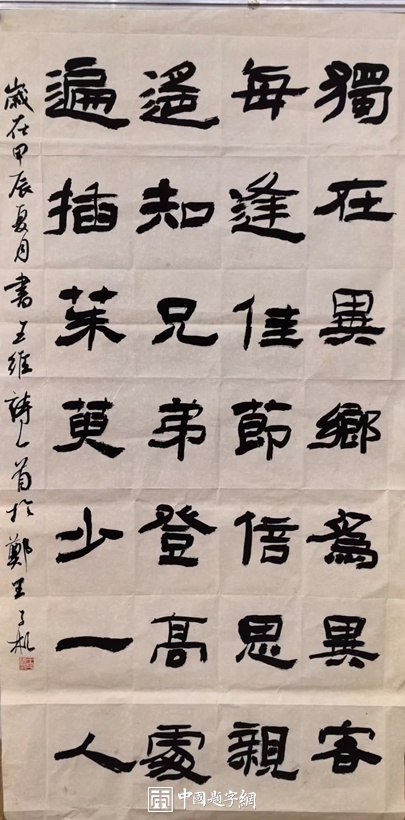 獨在異鄉爲異客
每逢佳節倍思親
遙知兄弟登高處
遍插茱萸少一人
歲在甲辰夏月書王維詩一首於鄭王子机
中國題字網